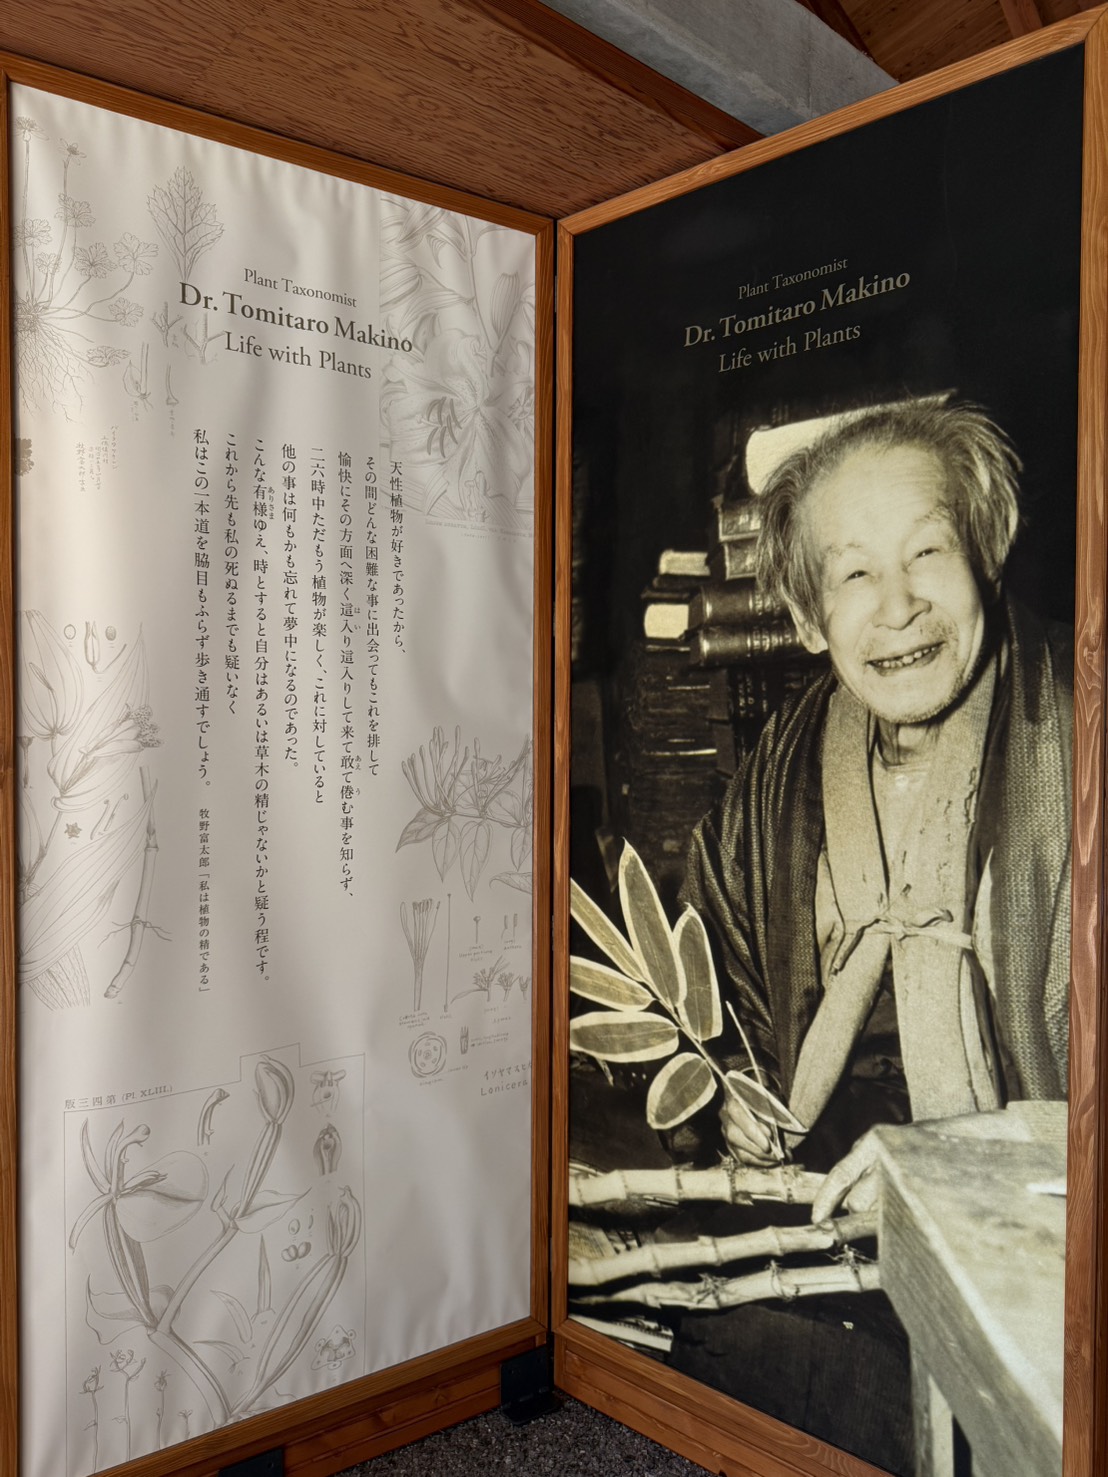 Plant Taxonomist
Dr. Tomitaro Makino
Life with Plants
天性植物が好きであったから、
その間どんな困難な事に出会ってもこれを排して
愉快にその方面へ深く這入り這入りして来て敢て倦む事を知らず、
二六時中ただもう植物が楽しく、これに対していると
他の事は何もかも忘れて夢中になるのであった。
こんな有様ゆえ、時とすると自分はあるいは草木の精じゃないかと疑う程です。
これから先も私の死ぬるまでも疑いなく
私はこの一本道を脇目もふらず歩き通すでしょう。
牧野富太郎「私は植物の精である」
版三四第 (Pl. XLIII.)
Lonicera
Plant Taxonomist
Dr. Tomitaro Makino
Life with Plants